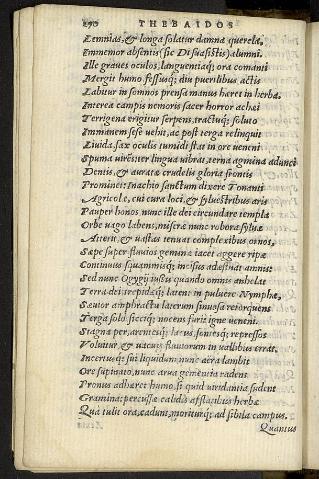 190 THEBAIDOS
Lemnias, & longa solatur damna querela.
Immemor absentis (sic Di suasistis) alumni.
Ille graues oculos, languentiaq; ora comanti
Mergit humo fessusq; diu puerilibus actis
Labitur in somnos prensa manus hæret in herba.
Interea campis nemoris sacer horror achei
Terrigena erigitur serpens, tractuq; soluto
Immanem sese vehit, ac post terga relinquit
Liuida, fax oculis tumidi stat in ore veneni
Spuma virens: ter lingua vibrat, terna agmina adunci
Dentis, & auratæ crudelis gloria frontis
Prominet: Inachio sanctum dixere Tonanti
Agricolæ, cui cura loci, & syluestribus aris
Pauper honos nunc ille dei circundare templa
Orbe vago labens, miseræ nunc robora syluæ
Atterit, & vastas tenuat complexibus ornos,
Sæpe super fluuios gemina iacet aggere ripæ
Continuus squammisq; incisus adæstuat amnis:
Sed nunc Ogygij iussis quando omnis anhelat
Terra dei trepidæq; latent in puluere Nymphæ,
Sæuior anfractu laterum sinuosa retorquens
Terga solo siccíq; nocens furit igne veneni.
Stagna per, arentesq; lacus, fontesq; repressos
Voluitur, & vacuis fluuiorum in vallibus errat.
Incertusq; sui liquidum nunc aëra lambit
Ore supinato, nunc arua gementia radens
Pronus adhæret humo, si quid viridantia sudent
Gramina: percussæ calidis afflatibus herbæ
Qua tulit ora, cadunt, moriturq; ad sibila campus.
Quantus